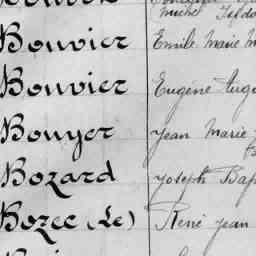 Michel Isido
Bouvier Emile Marie M
Bouvier Eugène Augu
Bouyer Jean Marie
Bozard Joseph Bap
Bozec (Le) René Jean